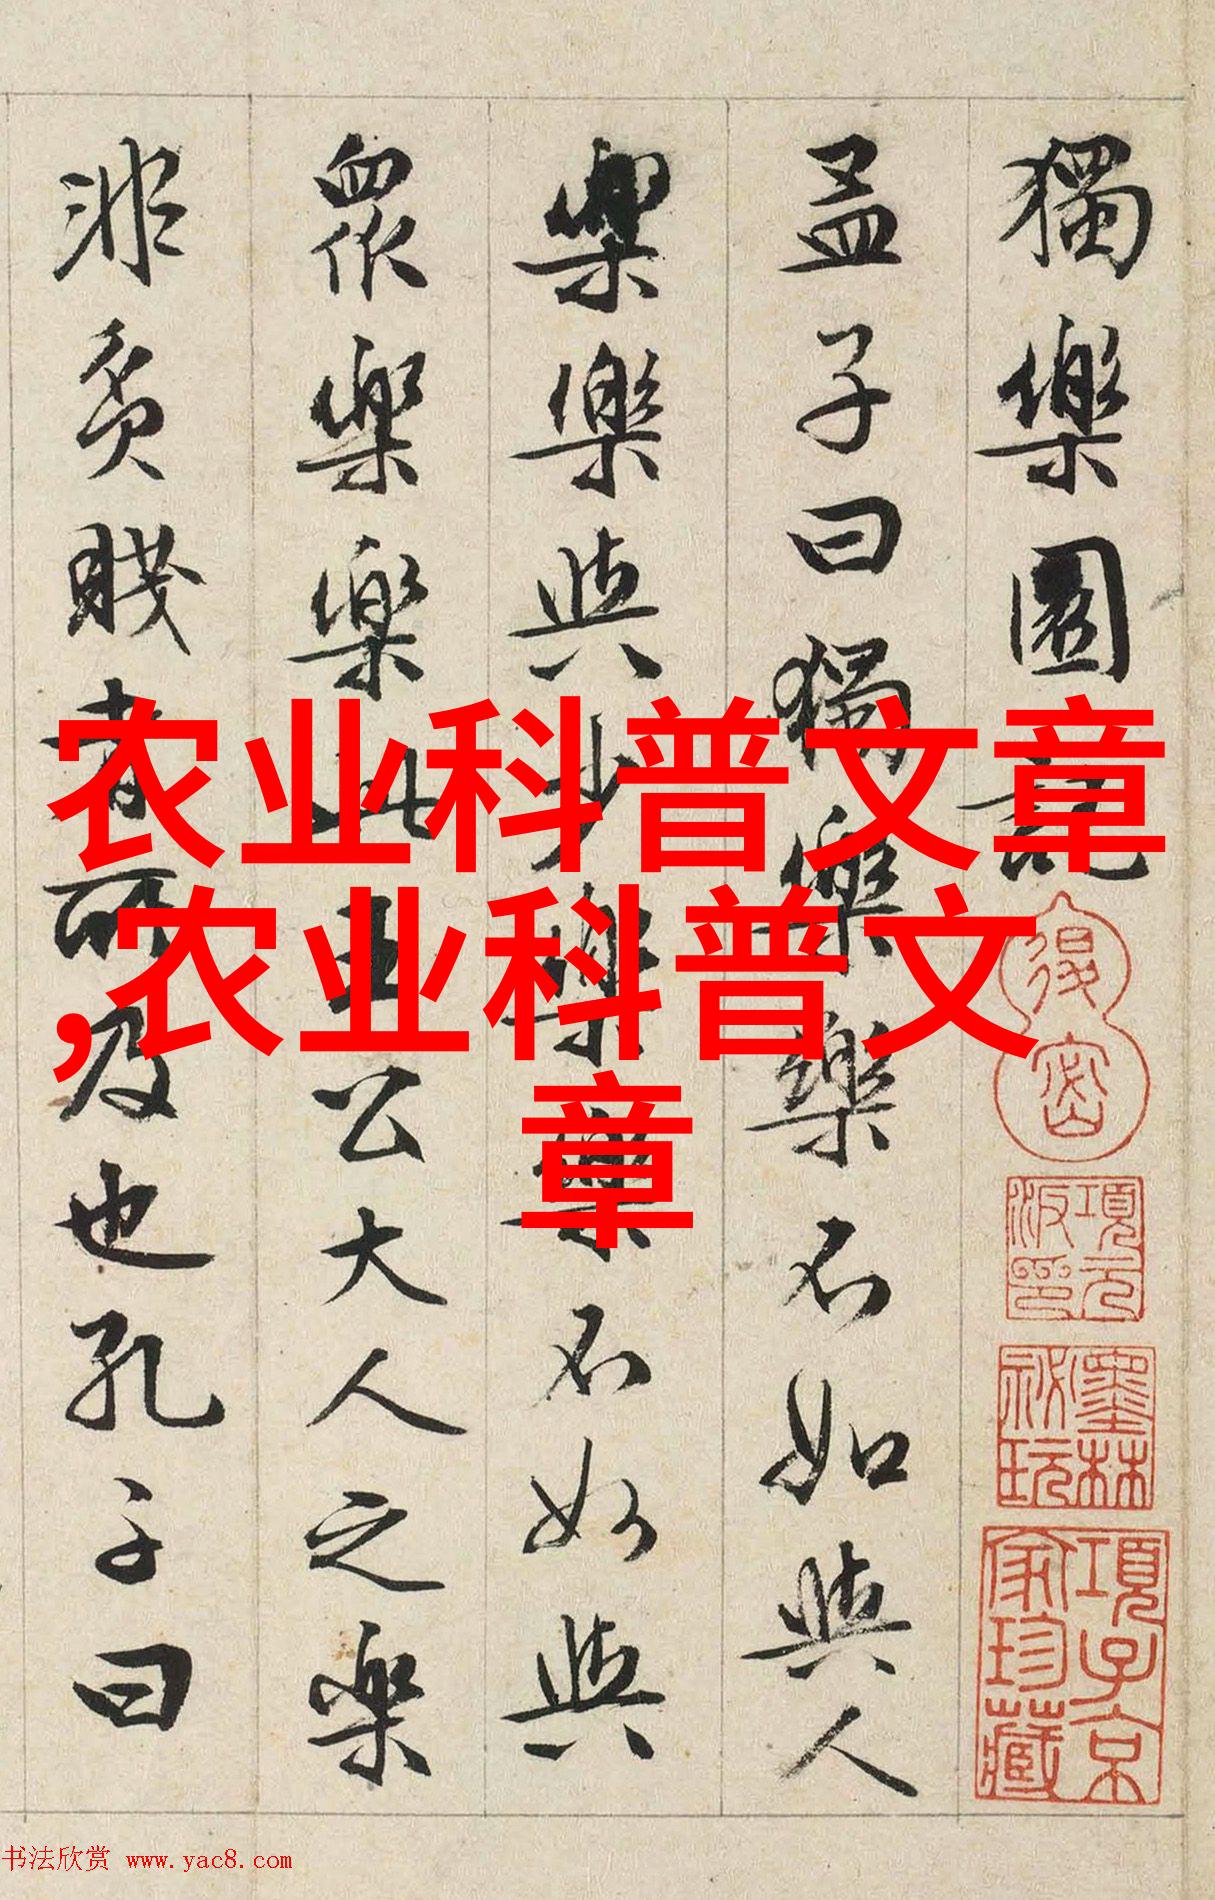 獨樂園記
孟子曰獨樂樂不如與人
樂樂與少樂樂不如與
眾樂樂此王公大人之樂
非貧賤者所及也孔子曰
農业科普文章
,农业科普文
章
項元汴印
墨林祕玩
項子京家珍藏
书法欣赏 www.yac8.com